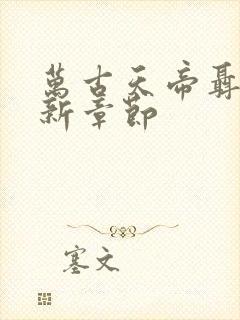 萬古天帝聶
新章節
塞文